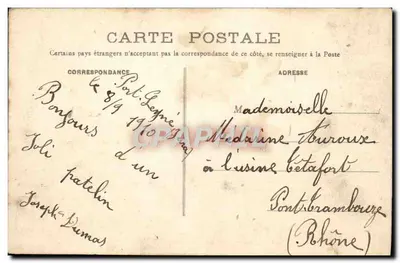 CARTE POSTALE
Certains pays étrangers n'acceptant pas la correspondance de ce côté, se renseigner à la Poste
CORRESPONDANCE
ADRESSE
le 8/9 190
Bonjours
d'un
Joli
patelin
Joseph Dumas
Mademoiselle
à l'usine Tétafort
Pont-Trambouze
(Rhône)